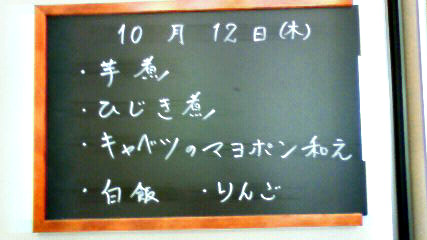 10月12日(木)
・芋煮
・ひじき煮
・キャベツのマヨポン和え
・白飯 ・りんご